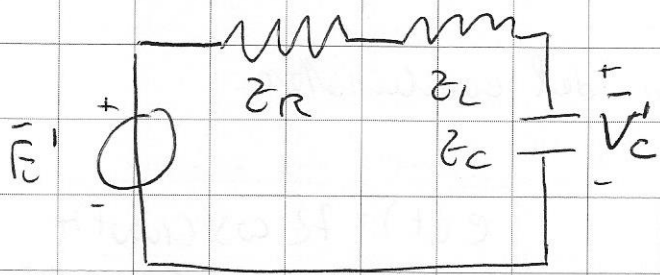 Z_R Z_L
+ Ē' Z_C + V̄'_C
- -